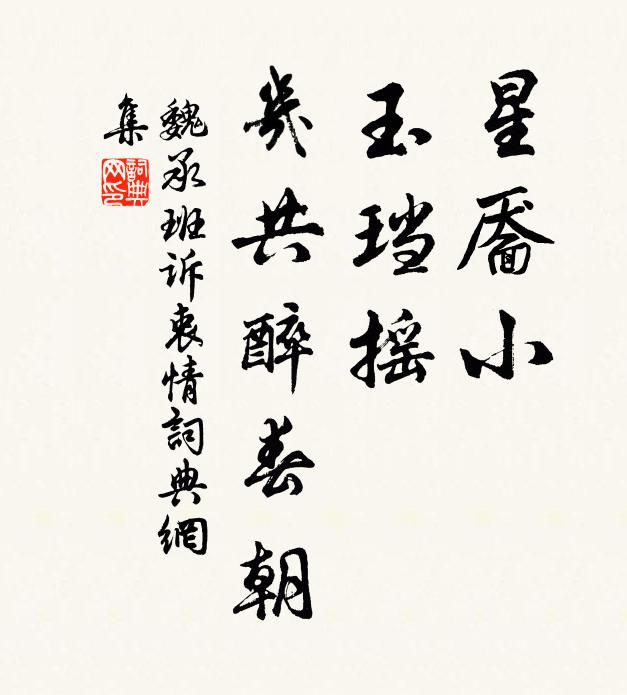 星靥小
玉珰摇
几共醉春朝
魏承班诉衷情詞典網
集
詞典
网印